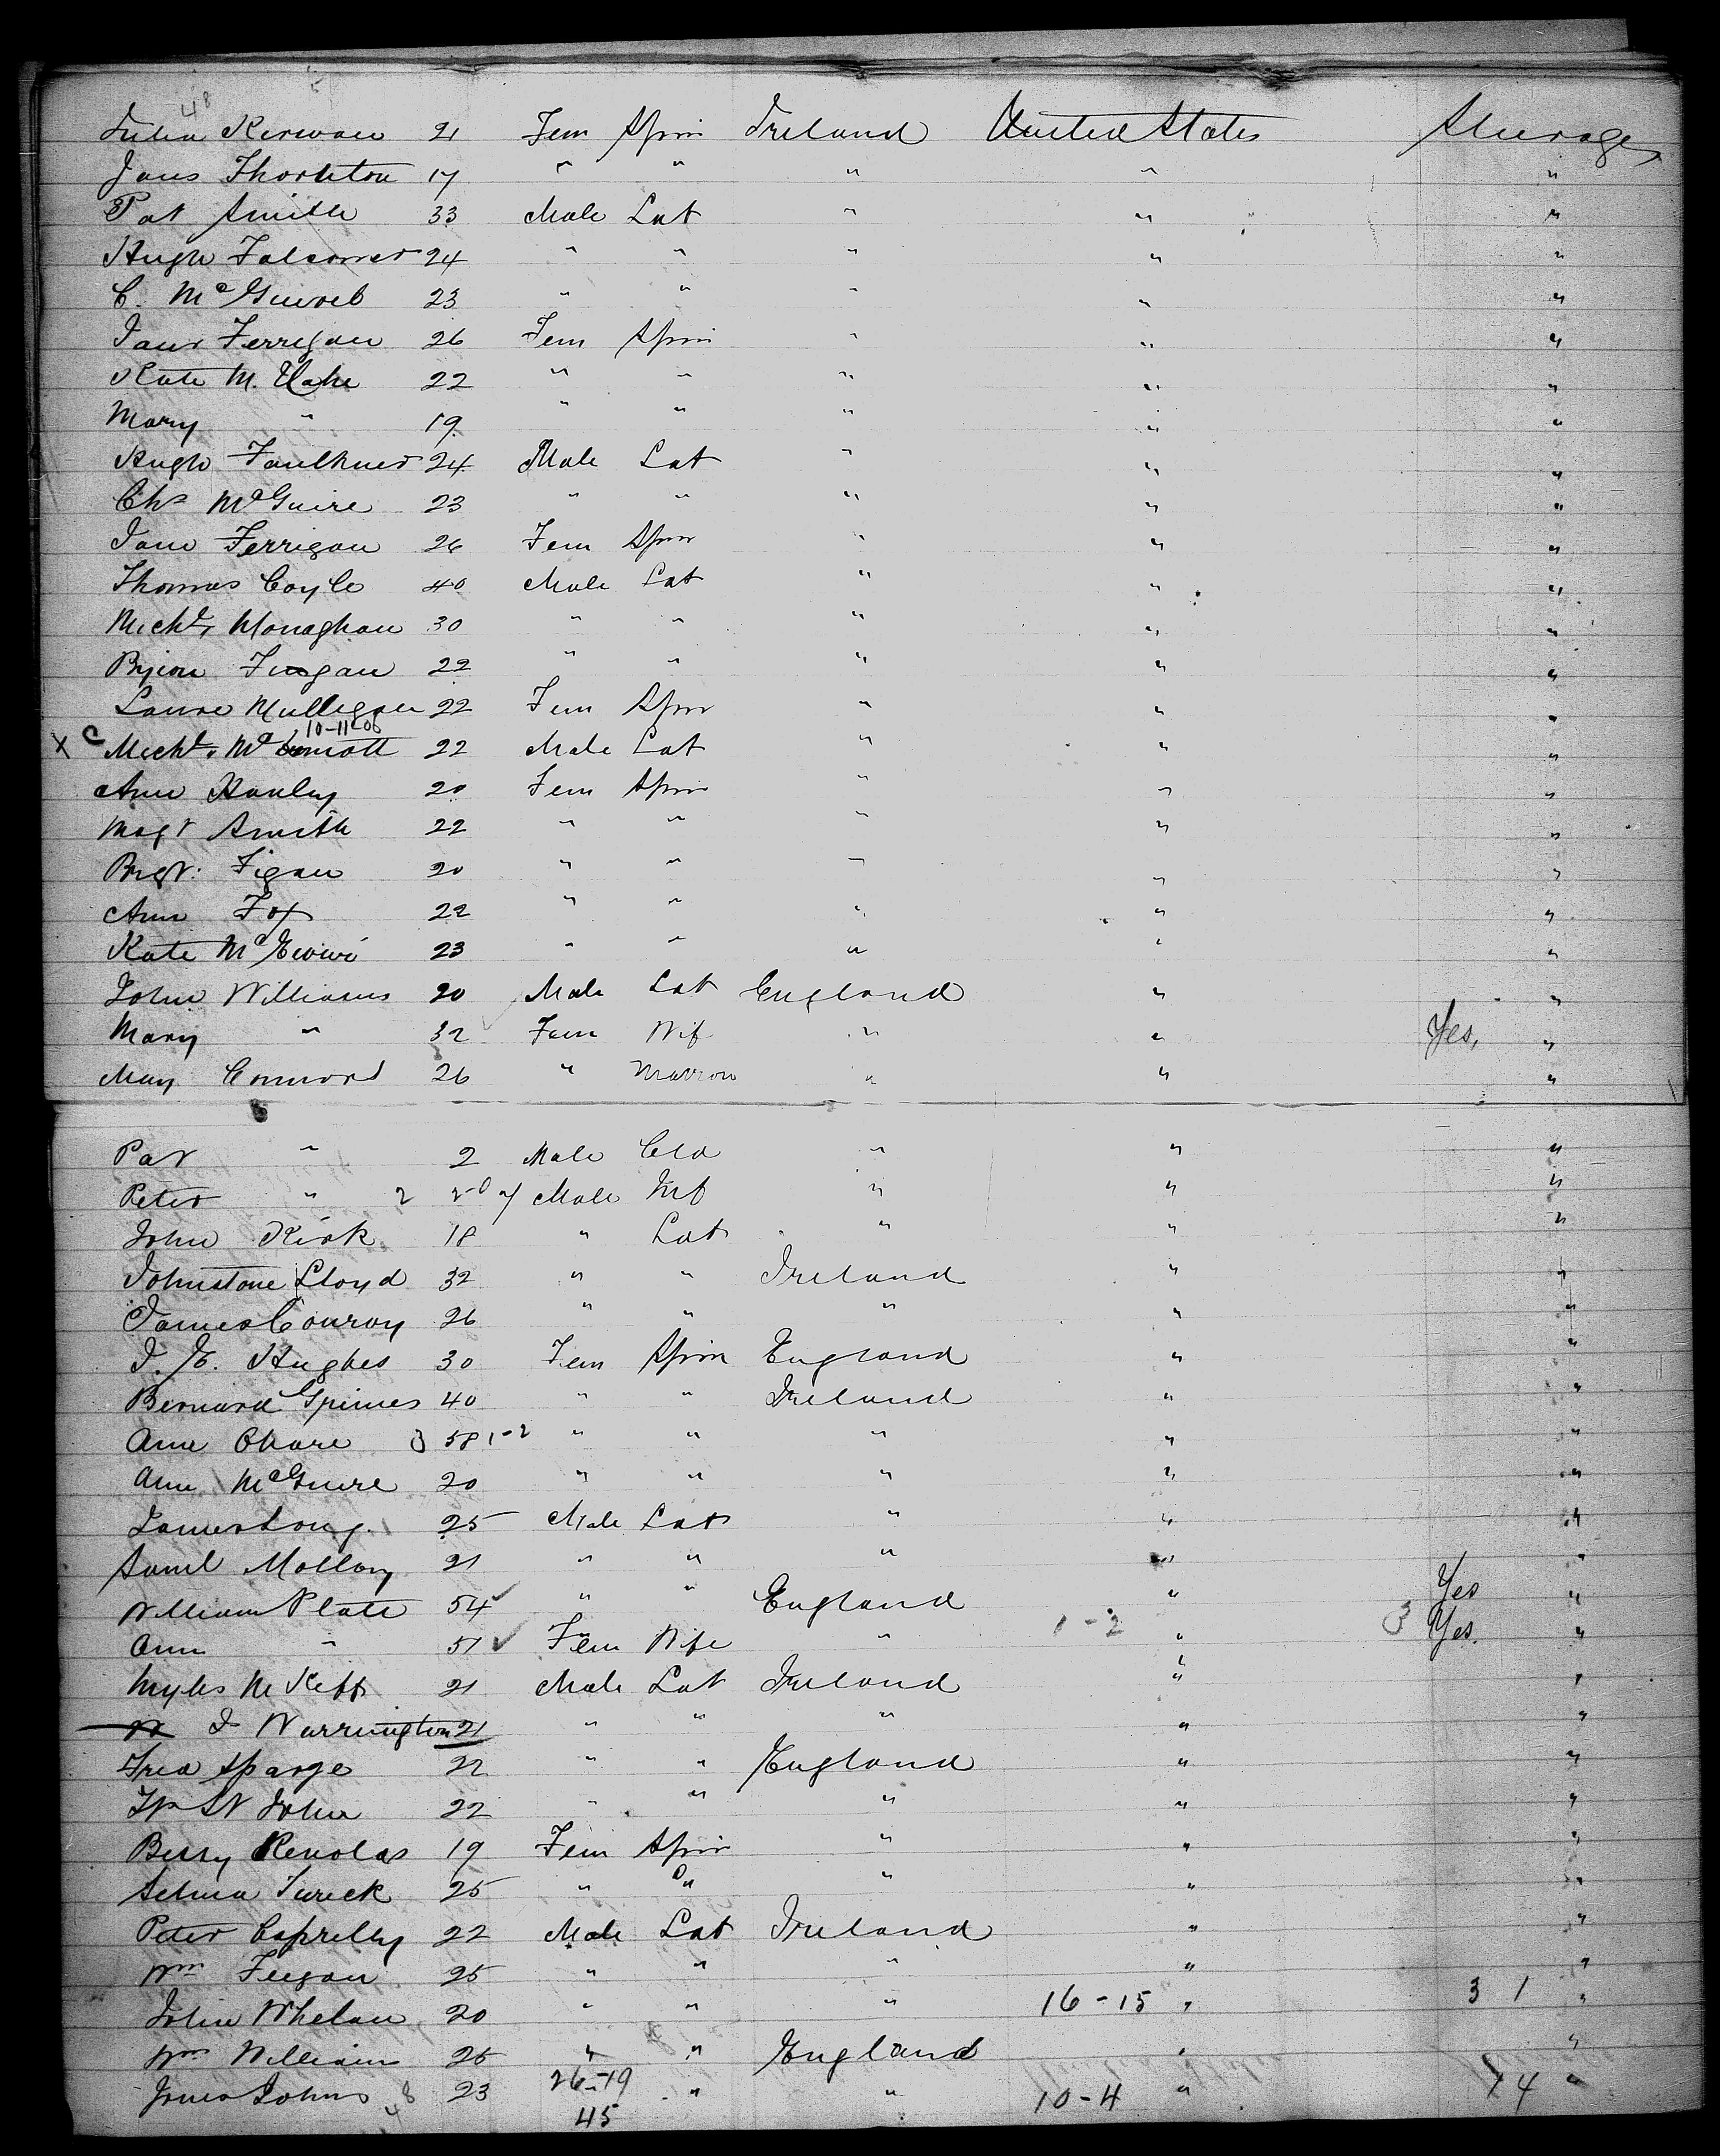 48
Julia Kirwan 21 Fem Spin Ireland United States Steerage
Jane Thornton 17 " " " " "
Pat Smith 33 Male Lab " " "
Hugh Falconer 24 " " " " "
C. McGuireb 23 " " " " "
Jane Ferrigan 26 Fem Spin " " "
Kate M. Kahe 22 " " " " "
Mary " 19 " " " " "
Hugh Faulkner 24 Male Lab " " "
Chs McGuire 23 " " " " "
Jane Ferrigan 26 Fem Spin " " "
Thomas Coyle 40 Male Lab " " "
Michl. Monaghan 30 " " " " "
Brian Finegan 22 " " " " "
Laura Mulligan 22 Fem Spin " " "
10-11-06
X C Michl. McDermott 22 Male Lab " " "
Ann Hanley 20 Fem Spin " " "
Magt Smith 22 " " " " "
Brgt: Figan 20 " " " " "
Ann Fox 22 " " " " "
Kate McEvowi 23 " " " " "
John Williams 20 Male Lab England " "
Mary " 32 Fem Wif " " Yes, "
May Connors 26 " Matron " " "
Pat " 2 Male Cld " " "
Peter " 2 Male Inf " " "
John Kirk 18 " Lab " " "
Johnstone Lloyd 32 " " Ireland " "
James Conroy 26 " " " " "
J. E. Hughes 30 Fem Spin England " "
Bernard Grimes 40 " " Ireland " "
Ann Ohare 3 58 1-2 " " " " "
Ann McGuire 20 " " " " "
James Long. 25 Male Lab " " "
Saml Molloy 21 " " " " "
William Platt 54 " " England " Yes "
Ann " 51 Fem Wife " 1-2 " 3 Yes. "
Myles McKeff 21 Male Lab Ireland " "
W J Warrington 21 " " " " "
Fred Sparge 22 " " England " "
St John 22 " " " " "
Bessy Renolds 19 Fem Spin " " "
Selina Tureck 25 " " " " "
Peter Caprelly 22 Male Lab Ireland " "
Wm Feegan 25 " " " " "
John Whelan 20 " " " 16-15 " 3 1 "
Wm William 25 " " England " "
Jones Johns 48 23 26-19 " " 10-4 " 14 "
45